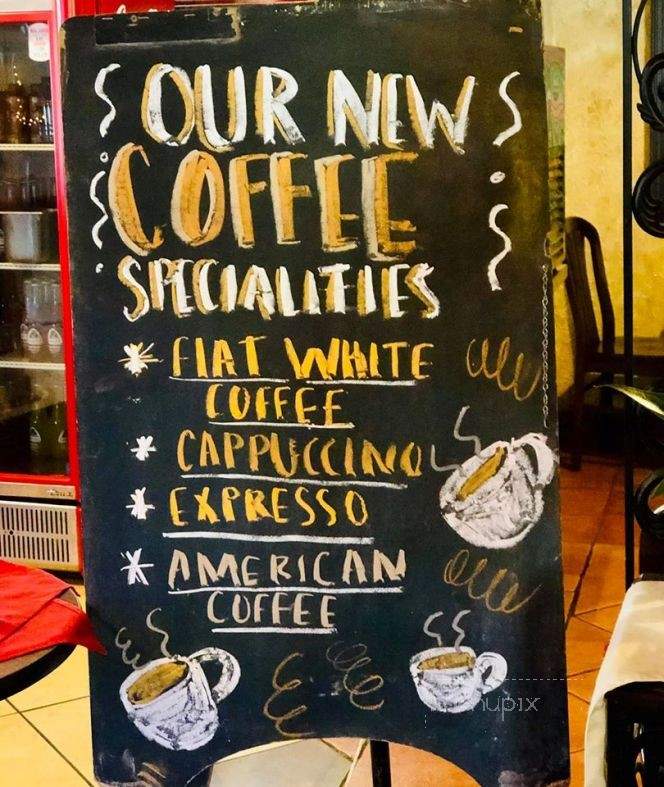 OUR NEW
COFFEE
SPECIALITIES
* FLAT WHITE
COFFEE
* CAPPUCCINO
* EXPRESSO
* AMERICAN
COFFEE